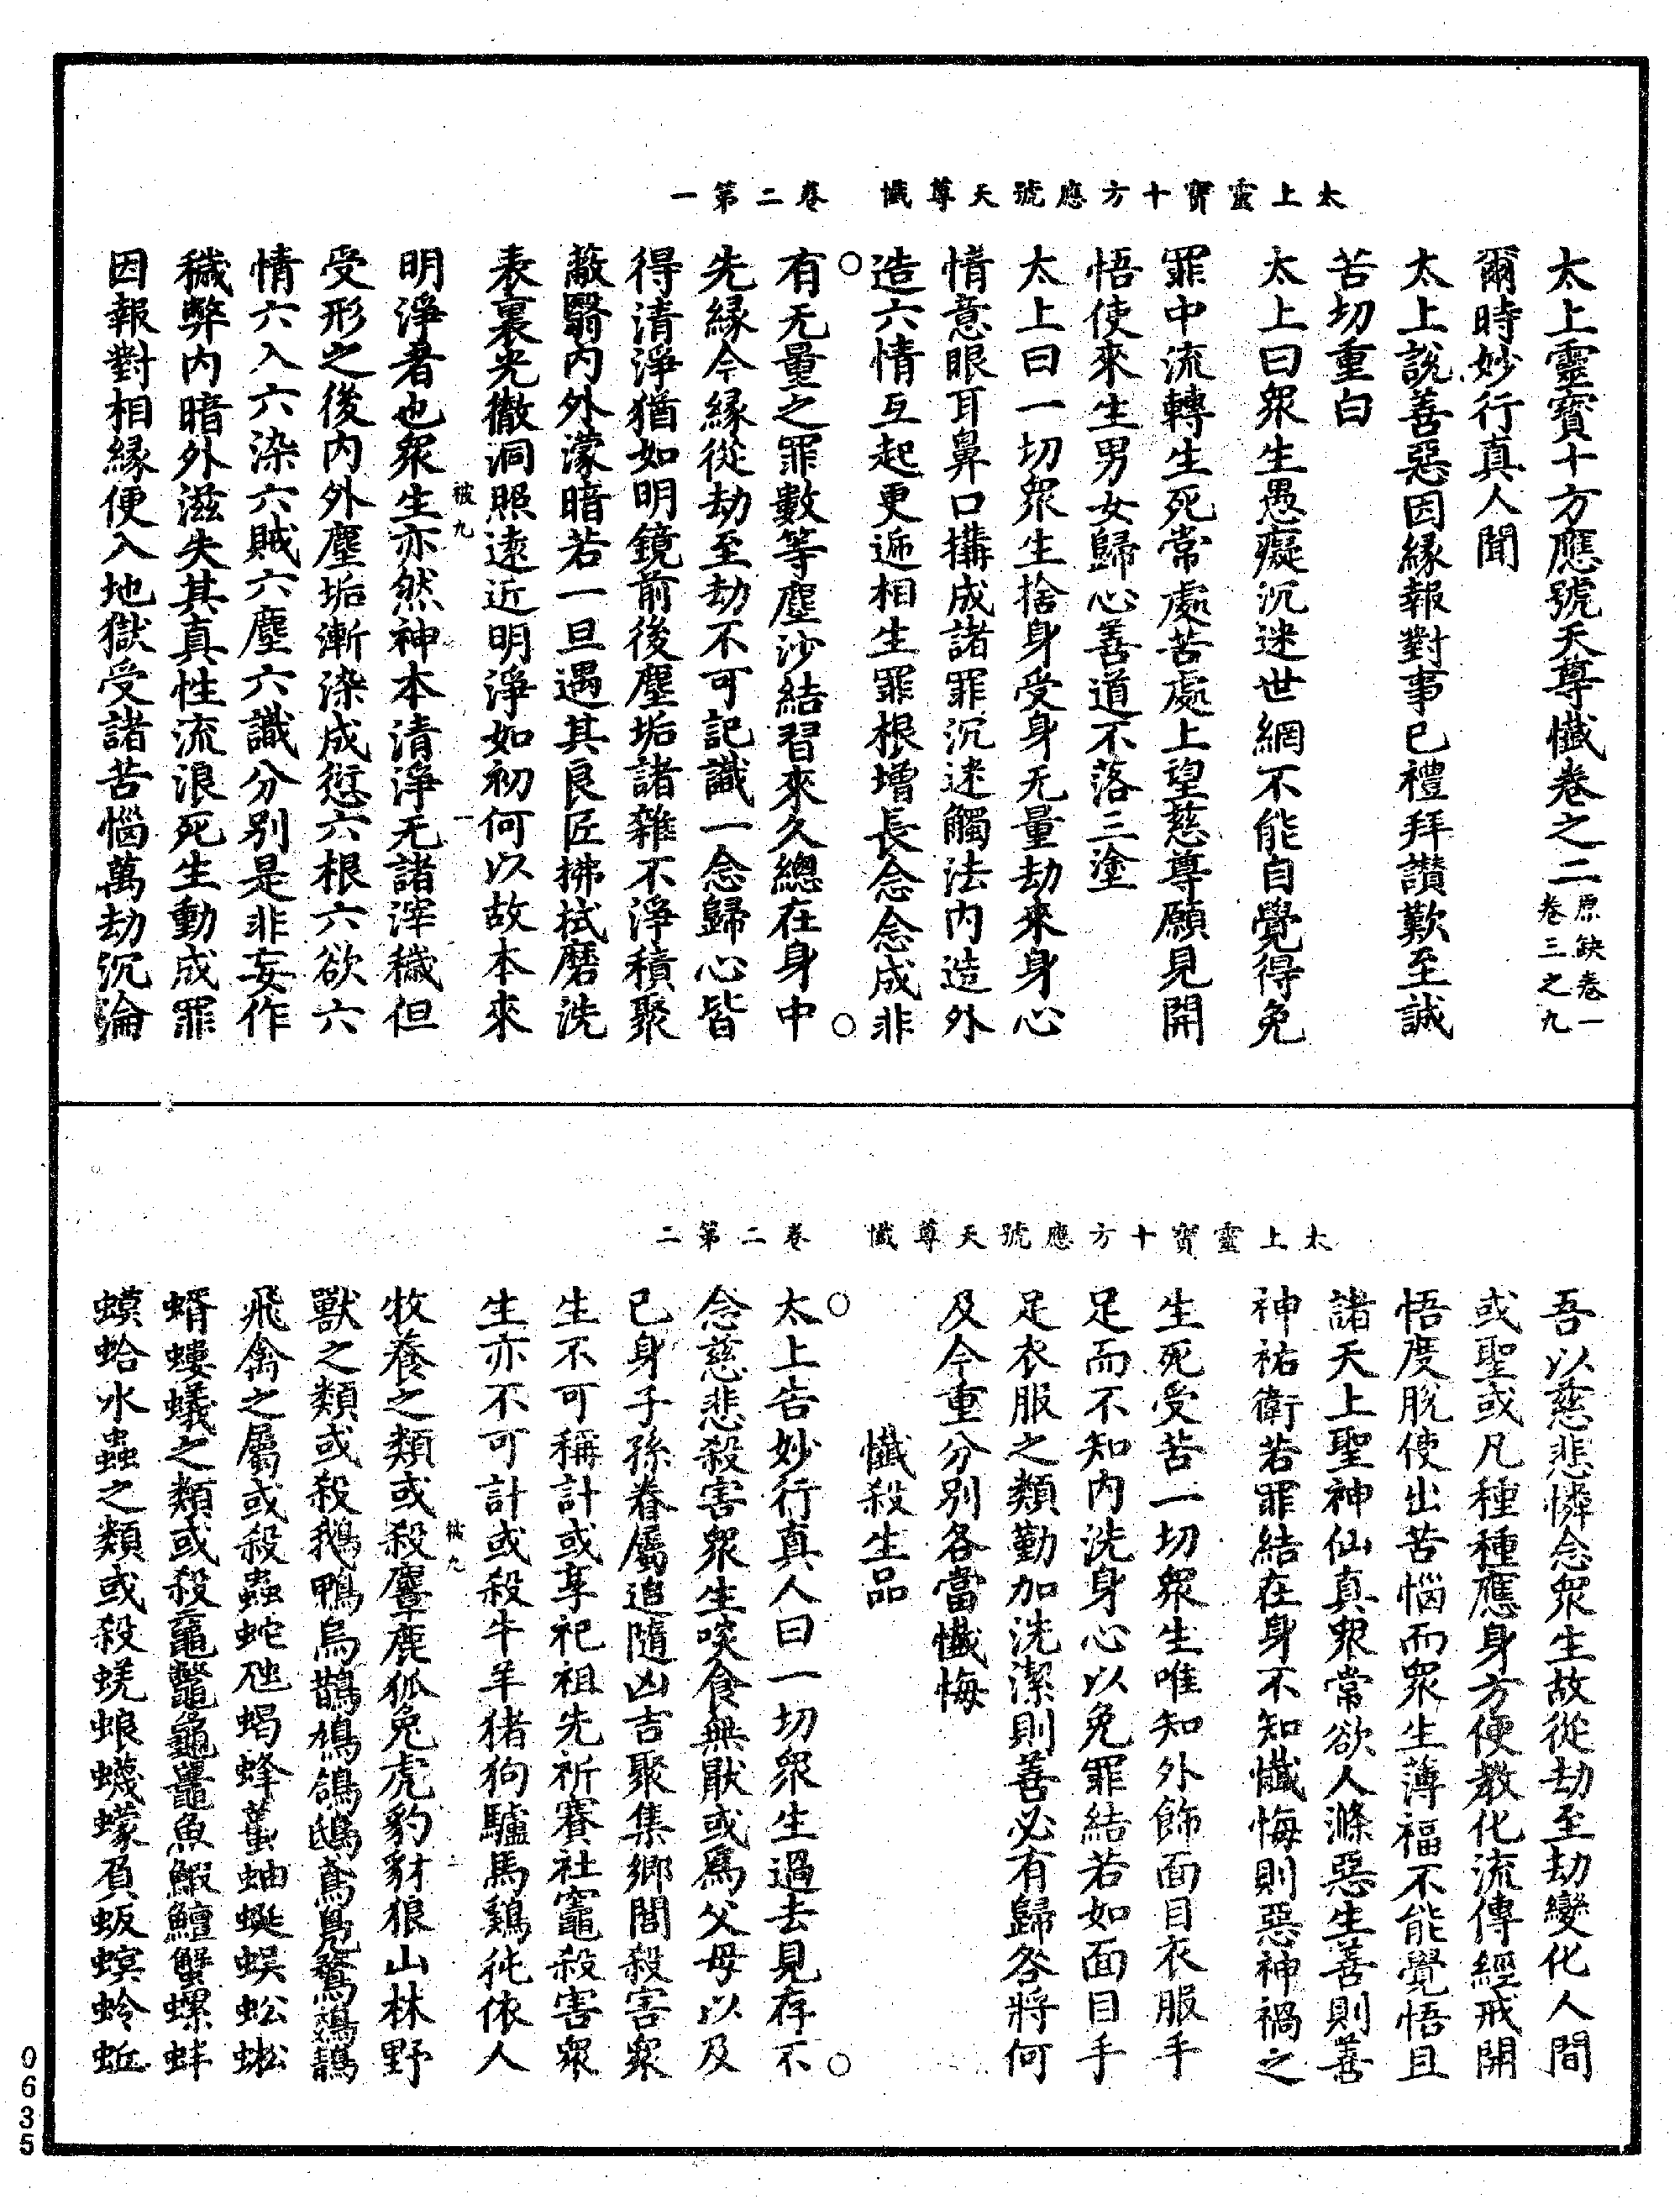 太上靈寶十方應號天尊懺　卷二第一
太上靈寶十方應號天尊懺卷之二原缺卷一卷三之九
爾時妙行真人聞
太上說善惡因緣報對事已禮拜讚歎至誠
苦切重白
太上曰眾生愚癡沉迷世網不能自覺得免
罪中流轉生死常處苦處上望慈尊願見開
悟使來生男女歸心善道不落三塗
太上曰一切眾生捨身受身无量劫來身心
情意眼耳鼻口搆成諸罪沉迷觸法內造外
造六情互起更遞相生罪根增長念念成非
有无量之罪數等塵沙結習來久總在身中
先緣今緣從劫至劫不可記識一念歸心皆
得清淨猶如明鏡前後塵垢諸雜不淨積聚
蔽翳內外濛暗若一旦遇其良匠拂拭磨洗
表裏光徹洞照遠近明淨如初何以故本來
被九　一
明淨者也眾生亦然神本清淨无諸滓穢但
受形之後內外塵垢漸染成愆六根六欲六
情六入六染六賊六塵六識分別是非妄作
穢弊內暗外滋失其真性流浪死生動成罪
因報對相緣便入地獄受諸苦惱萬劫沉淪
太上靈寶十方應號天尊懺　卷二第二
吾以慈悲憐念眾生故從劫至劫變化人間
或聖或凡種種應身方便教化流傳經戒開
悟度脫使出苦惱而眾生薄福不能覺悟且
諸天上聖神仙真眾常欲人滌惡生善則善
神祐衛若罪結在身不知懺悔則惡神禍之
生死受苦一切眾生唯知外飾面目衣服手
足而不知內洗身心以免罪結若如面目手
足衣服之類勤加洗潔則善必有歸咎將何
及今重分別各當懺悔
懺殺生品
太上告妙行真人曰一切眾生過去見存不
念慈悲殺害眾生啖食無猒或為父母以及
已身子孫眷屬追隨凶吉聚集鄉閭殺害眾
生不可稱計或享祀祖先祈賽社竈殺害眾
生亦不可計或殺牛羊猪狗驢馬鷄㹠依人
被九　二
牧養之類或殺麞鹿狐兔虎豹豺狼山林野
獸之類或殺鵝鴨烏鵲鳩鴿鴟鳶鳧鶩鷄鶄
飛禽之屬或殺蟲蛇虺蝎蜂蠆蚰蜒蜈蚣蜙
蝑螻蟻之類或殺黿鼈龜鼉魚鰕鱣蟹螺蚌
蟆蛤水蟲之類或殺蜣蜋蠛蠓負蝂螟蛉蚯
0635